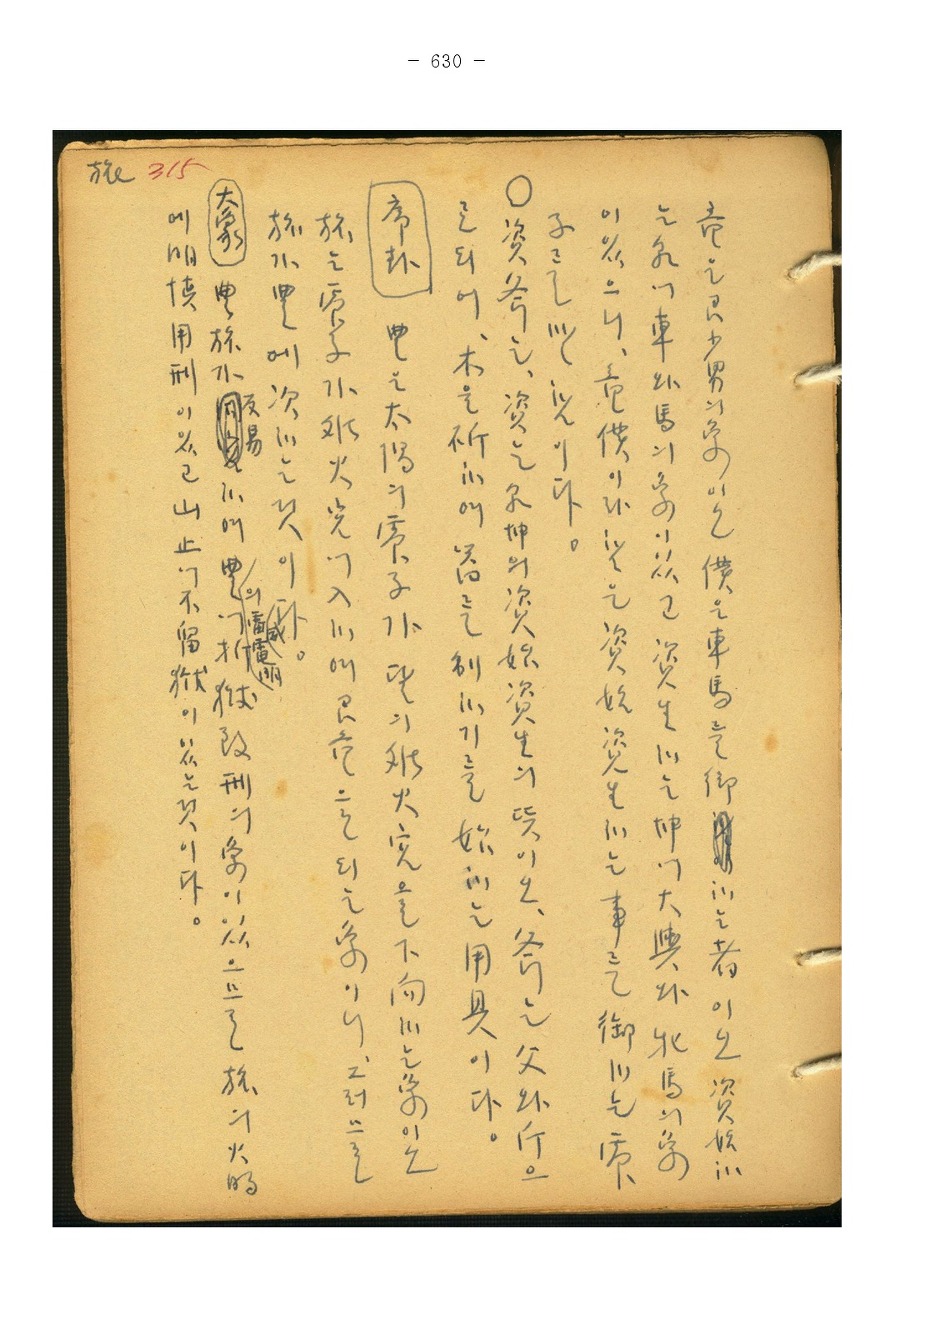 - 630 -
旅 315
童은艮少男의象이오 僕은車馬를御하는者이오 資始하
는乾에車와馬의象이있고 資生하는坤에大輿와牝馬의象
이있으니、童僕이라함은 資始資生하는事를御하는震
子를 말함이다。
○資斧는、資는乾坤의資始資生의뜻이오、斧는父와斤으
로되어、木을斫하여 器를制하기를 始하는用具이다。
序卦 豊은太陽의震子가 달의 火宍을下向하는象이오
旅는震子가 火宍에入하여艮童으로되는象이니、그러므로
旅가豊에次하는것이다。
大象 豊旅가反易하여 豊의雷威電明에折獄致刑의象이있으므로 旅의火明
에明慎用刑이있고山止에不留獄이있는것이다。